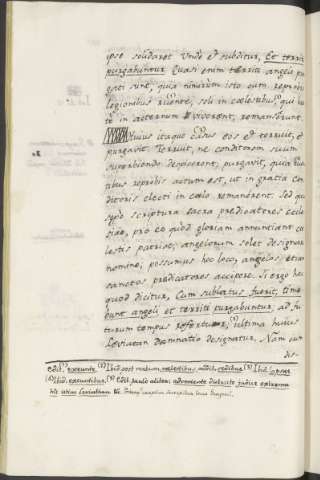 ipso solidaret. Unde et subditur, Et territi
purgabuntur. Quasi enim territi angeli pur
gati sunt, quia nimirum isto cum reprobis
legionibus ruente, soli in coelestibus, qui bea
te in aeternum viverent, remanserunt.
Huius itaque casus eos et terruit, et
purgavit. Terruit, ne conditorem suum
superbiendo despicerent; purgavit, quia
tibus reprobis actum est, ut in gratia Con
ditoris electi in coelo remanerent. Sed quia
sepe scriptura sacra predicatores eccle
siae, pro eo quod gloriam annuntiant coe
lestis patriae, angelorum solet designare
nomine, possumus hoc loco, angelos, etiam
sanctos predicatores accipere. Si ergo hec
quod dicitur, Cum sublatus fuerit, time
bunt angeli et territi purgabuntur, ad fu
turum tempus refertur; ultima huius
Leviatan damnatio designatur. Nam cum
dis-
edit. exeunte. Ibid. post realium coelestibus addit. sedibus. Ibid.
Ibid. Edit. paulo aliter; adveniente districto judice extrema
his istius Leviathan etc.